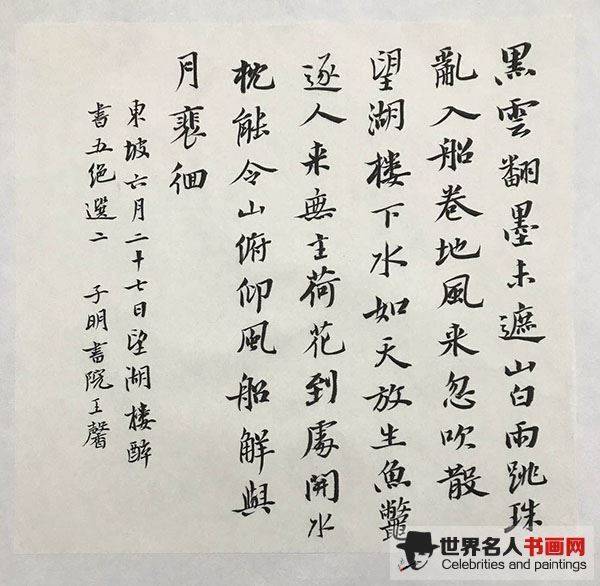 黑雲翻墨未遮山白雨跳珠
亂入船卷地風来忽吹散
望湖樓下水如天放生魚鼈
逐人来無主荷花到處開水
枕能令山俯仰風船解與
月裵徊
東坡六月二十七日望湖樓醉
書五絕選二 子明書院王馨
世界名人书画网
Celebrities and paintings